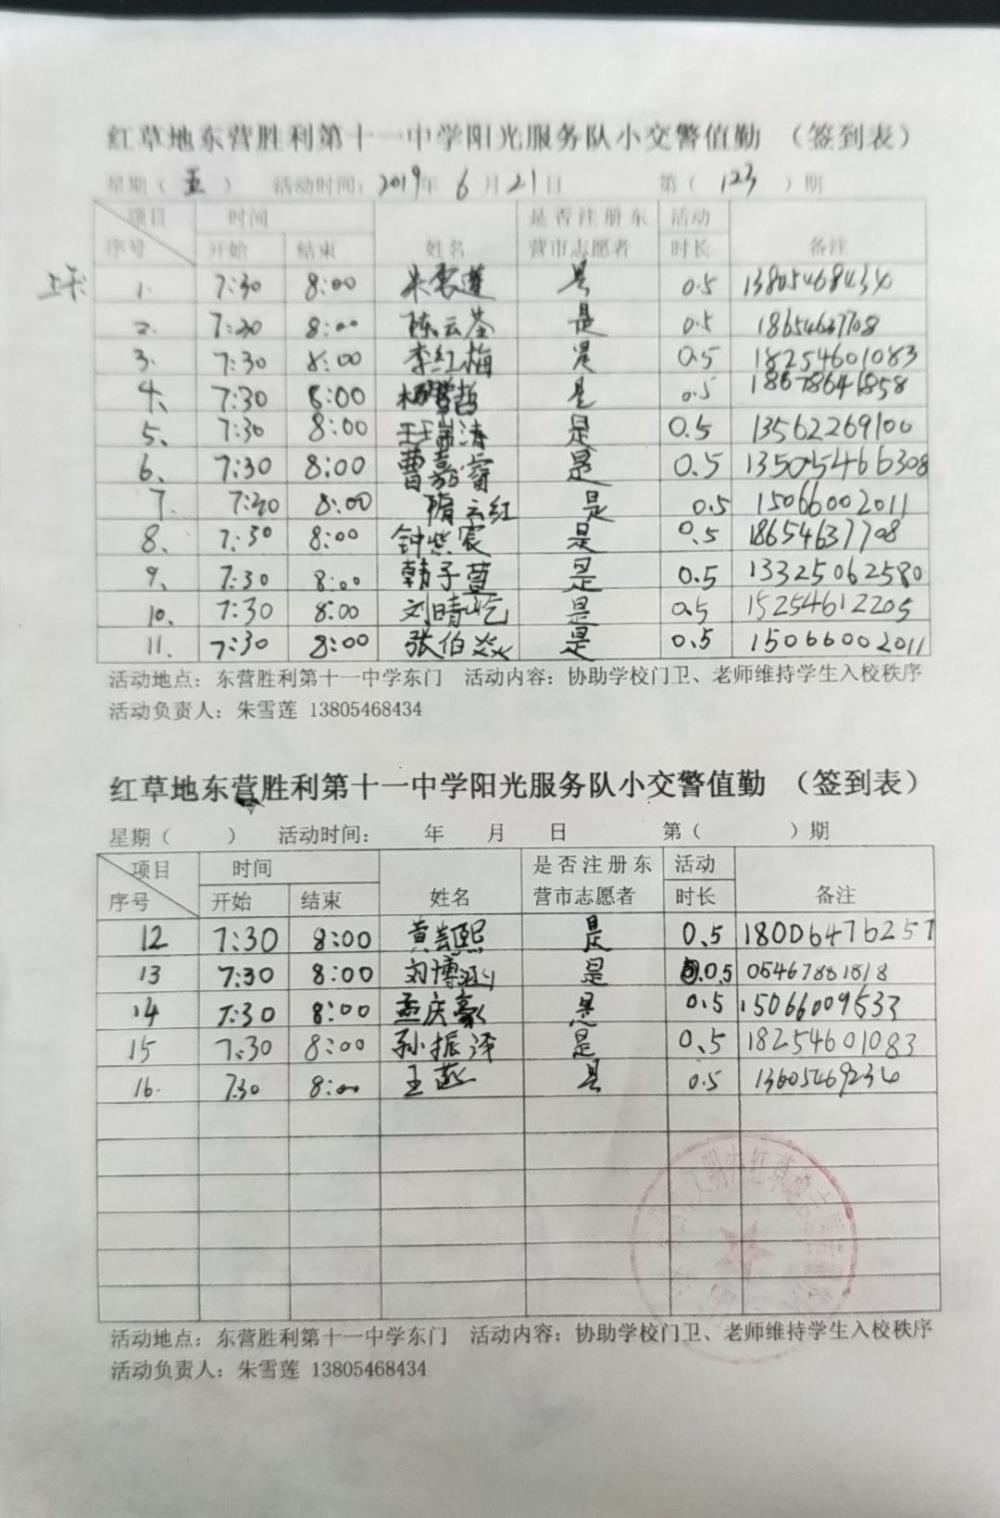 红草地东营胜利第十一中学阳光服务队小交警值勤 （签到表）
星期（ 五 ） 活动时间：2019年 6 月 21日 第（ 123 ）期
项目 时间 是否注册东 活动
序号 开始 结束 姓名 营市志愿者 时长 备注
上午 1. 7:30 8:00 朱雪莲 是 0.5 13805468434
2. 7:30 8:00 陈云荃 是 0.5 18654637708
3. 7:30 8:00 李红梅 是 0.5 18254601083
4、 7:30 8:00 是 0.5 18678641858
5、 7:30 8:00 王瑞涛 是 0.5 13562269100
6、 7:30 8:00 曹嘉睿 是 0.5 135054466308
7. 7:30 8:00 隋云红 是 0.5 15066002011
8、 7:30 8:00 钟紫宸 是 0.5 18654637708
9、 7:30 8:00 韩子萱 是 0.5 13325062580
10、 7:30 8:00 刘晴屹 是 0.5 15254612205
11、 7:30 8:00 张伯焱 是 0.5 15066002011
活动地点：东营胜利第十一中学东门 活动内容：协助学校门卫、老师维持学生入校秩序
活动负责人：朱雪莲 13805468434
红草地东营胜利第十一中学阳光服务队小交警值勤 （签到表）
星期（ ） 活动时间： 年 月 日 第（ ）期
项目 时间 是否注册东 活动
序号 开始 结束 姓名 营市志愿者 时长 备注
12 7:30 8:00 是 0.5 18006476257
13 7:30 8:00 刘博 是 0.5 05467881818
14 7:30 8:00 孟庆豪 是 0.5 15066009533
15 7:30 8:00 孙振泽 是 0.5 18254601083
16. 7:30 8:00 王燕 是 0.5 13605469234
活动地点：东营胜利第十一中学东门 活动内容：协助学校门卫、老师维持学生入校秩序
活动负责人：朱雪莲 13805468434